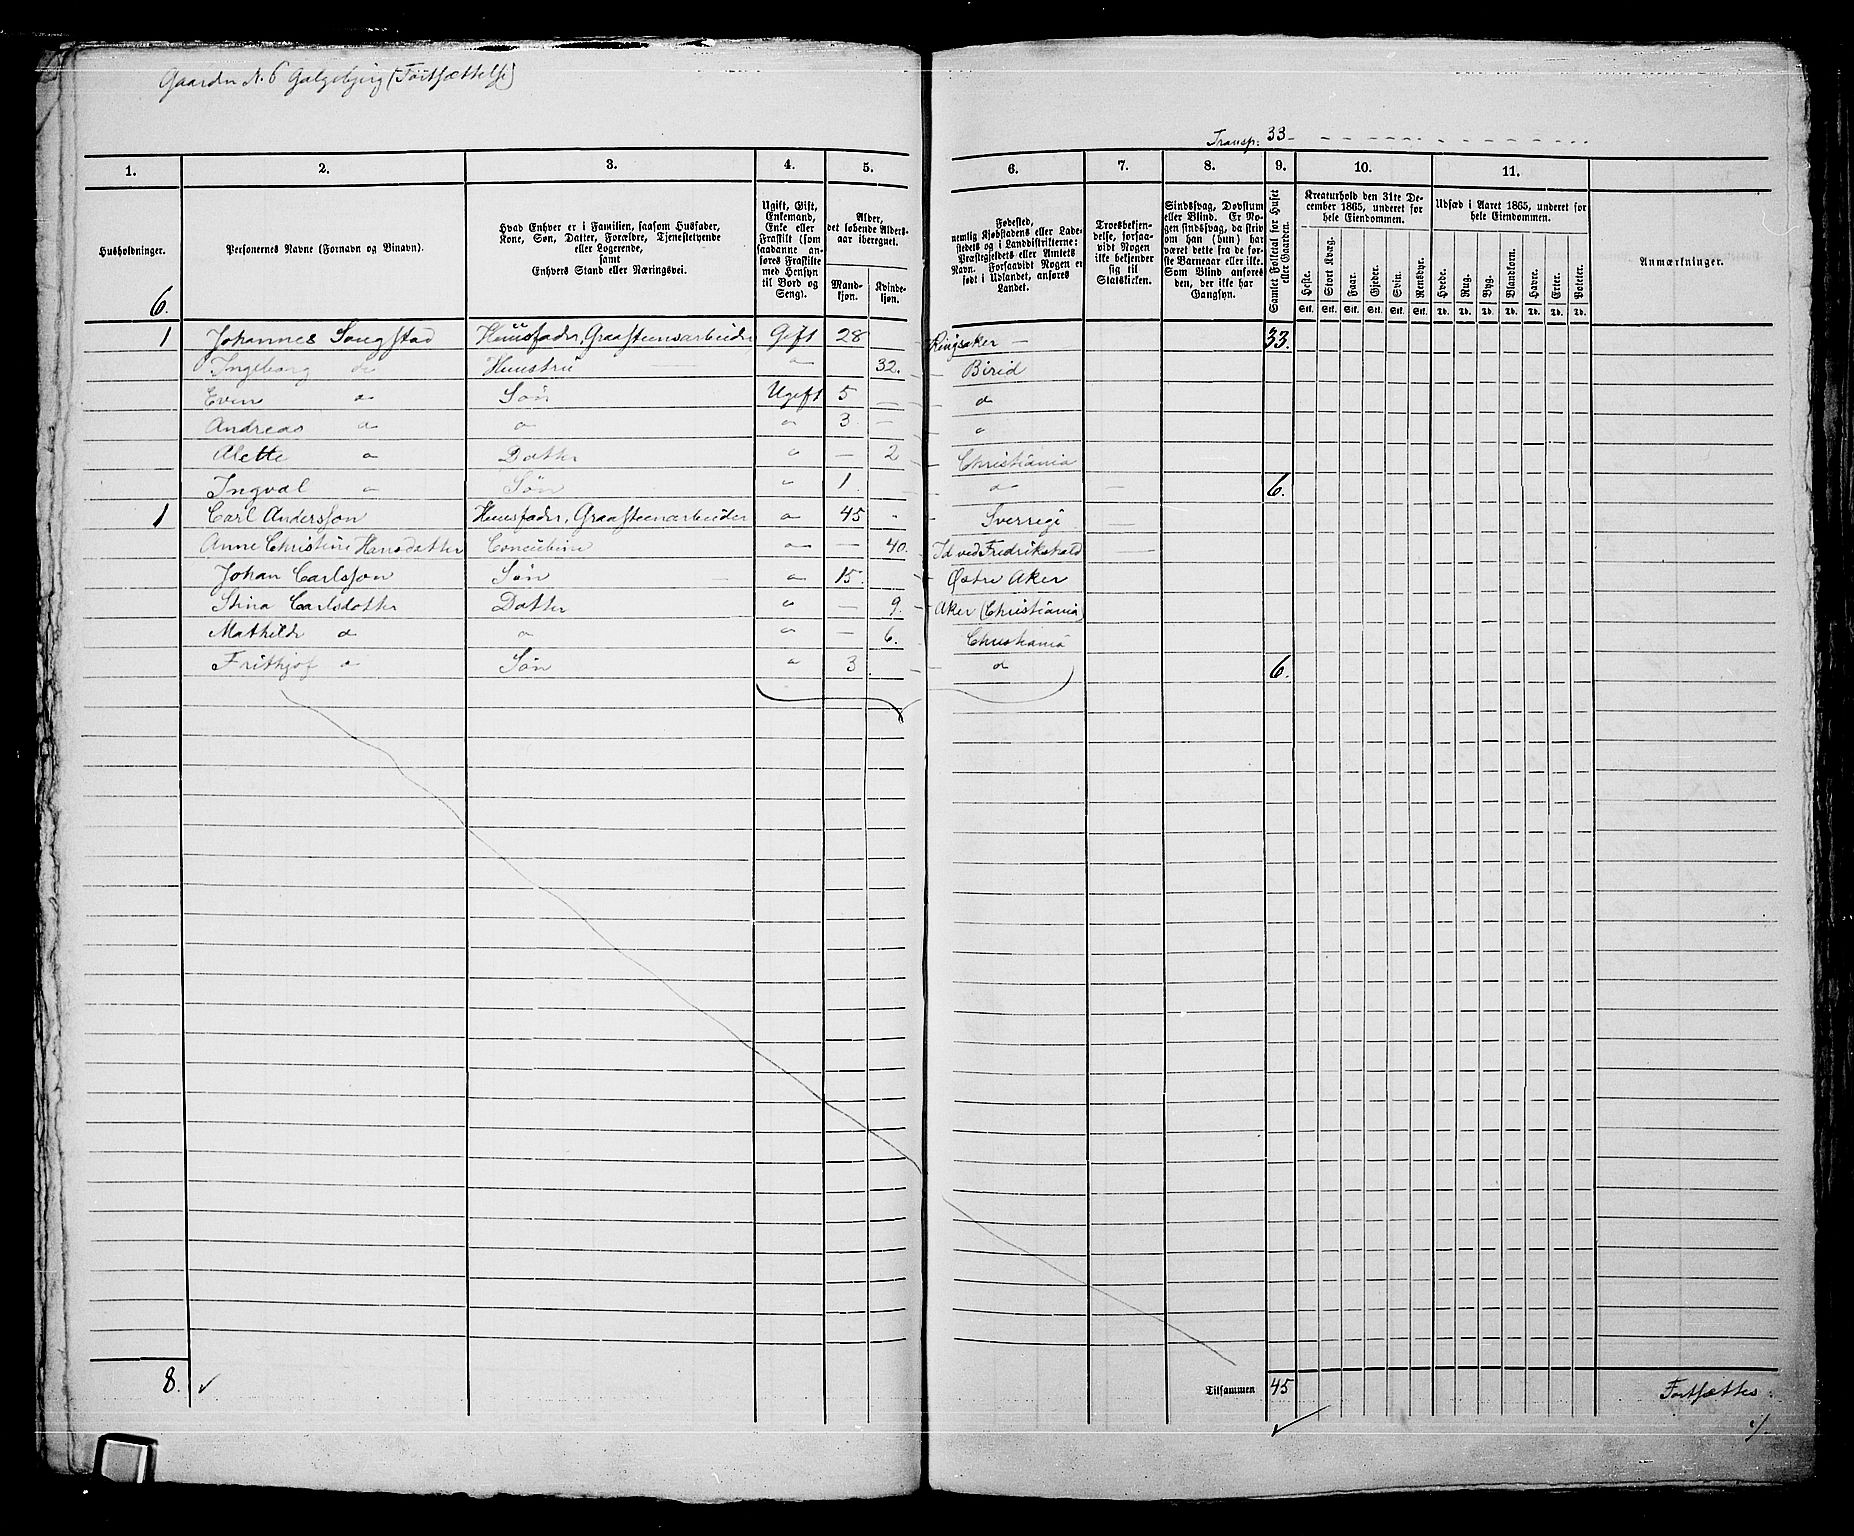 Gaarden N. 6 Galgebjerg (Fortsættelse)
Transp. 33
1. 2. 3. 4. 5. 6. 7. 8. 9. 10. 11.
Husholdninger.
Personernes Navne (Fornavn og Binavn).
Hvad Enhver er i Familien, saasom Husfader,
Kone, Søn, Datter, Forældre, Tjenestetyende
eller Logerende,
samt
Enhvers Stand eller Næringsvei.
Ugift, Gift,
Enkemand,
Enke eller
Fraskilt (som
saadanne an-
føres Fraskilte
med Hensyn
til Bord og
Seng).
Alder,
det løbende Alders-
aar iberegnet.
Mand-
kjøn.
Kvinde-
kjøn.
Fødested,
nemlig Kjøbstadens eller Lade-
stedets og i Landdistrikterne:
Præstegjeldets eller Amtets
Navn. Forsaavidt Nogen er
født i Udlandet, anføres
Landet.
Troesbekjen-
delse, forsaa-
vidt Nogen
ikke bekjender
sig til
Statskirken.
Sindssvag, Døvstum
eller Blind. Er No-
gen sindssvag, da skriv
om han (hun) har
været dette fra de før-
ste Barneaar eller ikke.
Som Blind anføres
den, der ikke har
Gangsyn.
Samlet Folketal for Huset
eller Gaarden.
Kreaturhold den 31te De-
cember 1865, underet for
hele Eiendommen.
Heste. Stort Kvæg. Faar. Gjeder. Svin. Rensdyr.
Stk. Stk. Stk. Stk. Stk. Stk.
Udsæd i Aaret 1865, underet for
hele Eiendommen.
Hvede. Rug. Byg. Blandkorn. Havre. Erter. Poteter.
Td. Td. Td. Td. Td. Td. Td.
Anmærkninger.
6.
1 Johannes Songstad Huusfader, Graasteensarbeider Gift 28 Ringsaker — 33.
Ingeborg do Huustru — " 32. Birid
Even " Søn Ugift 5 — "
Andreas " " " 3. — "
Alette " Datter " — 2 Christiania
Ingval " Søn " 1. " 6.
1 Carl Andersson Huusfader, Graasteenarbeider " 45 - Sverrige
Anne Christine Hansdatter Concubine " — 40. Id ved Fredrikshald
Johan Carlsson Søn " 15. Østre Aker
Stina Carlsdatter Datter " — 9. Aker (Christiania)
Mathilde " " " — 6. Christiania
Frithjof " Søn " 3 " 6.
8.
Tilsammen 45
Fortsættes